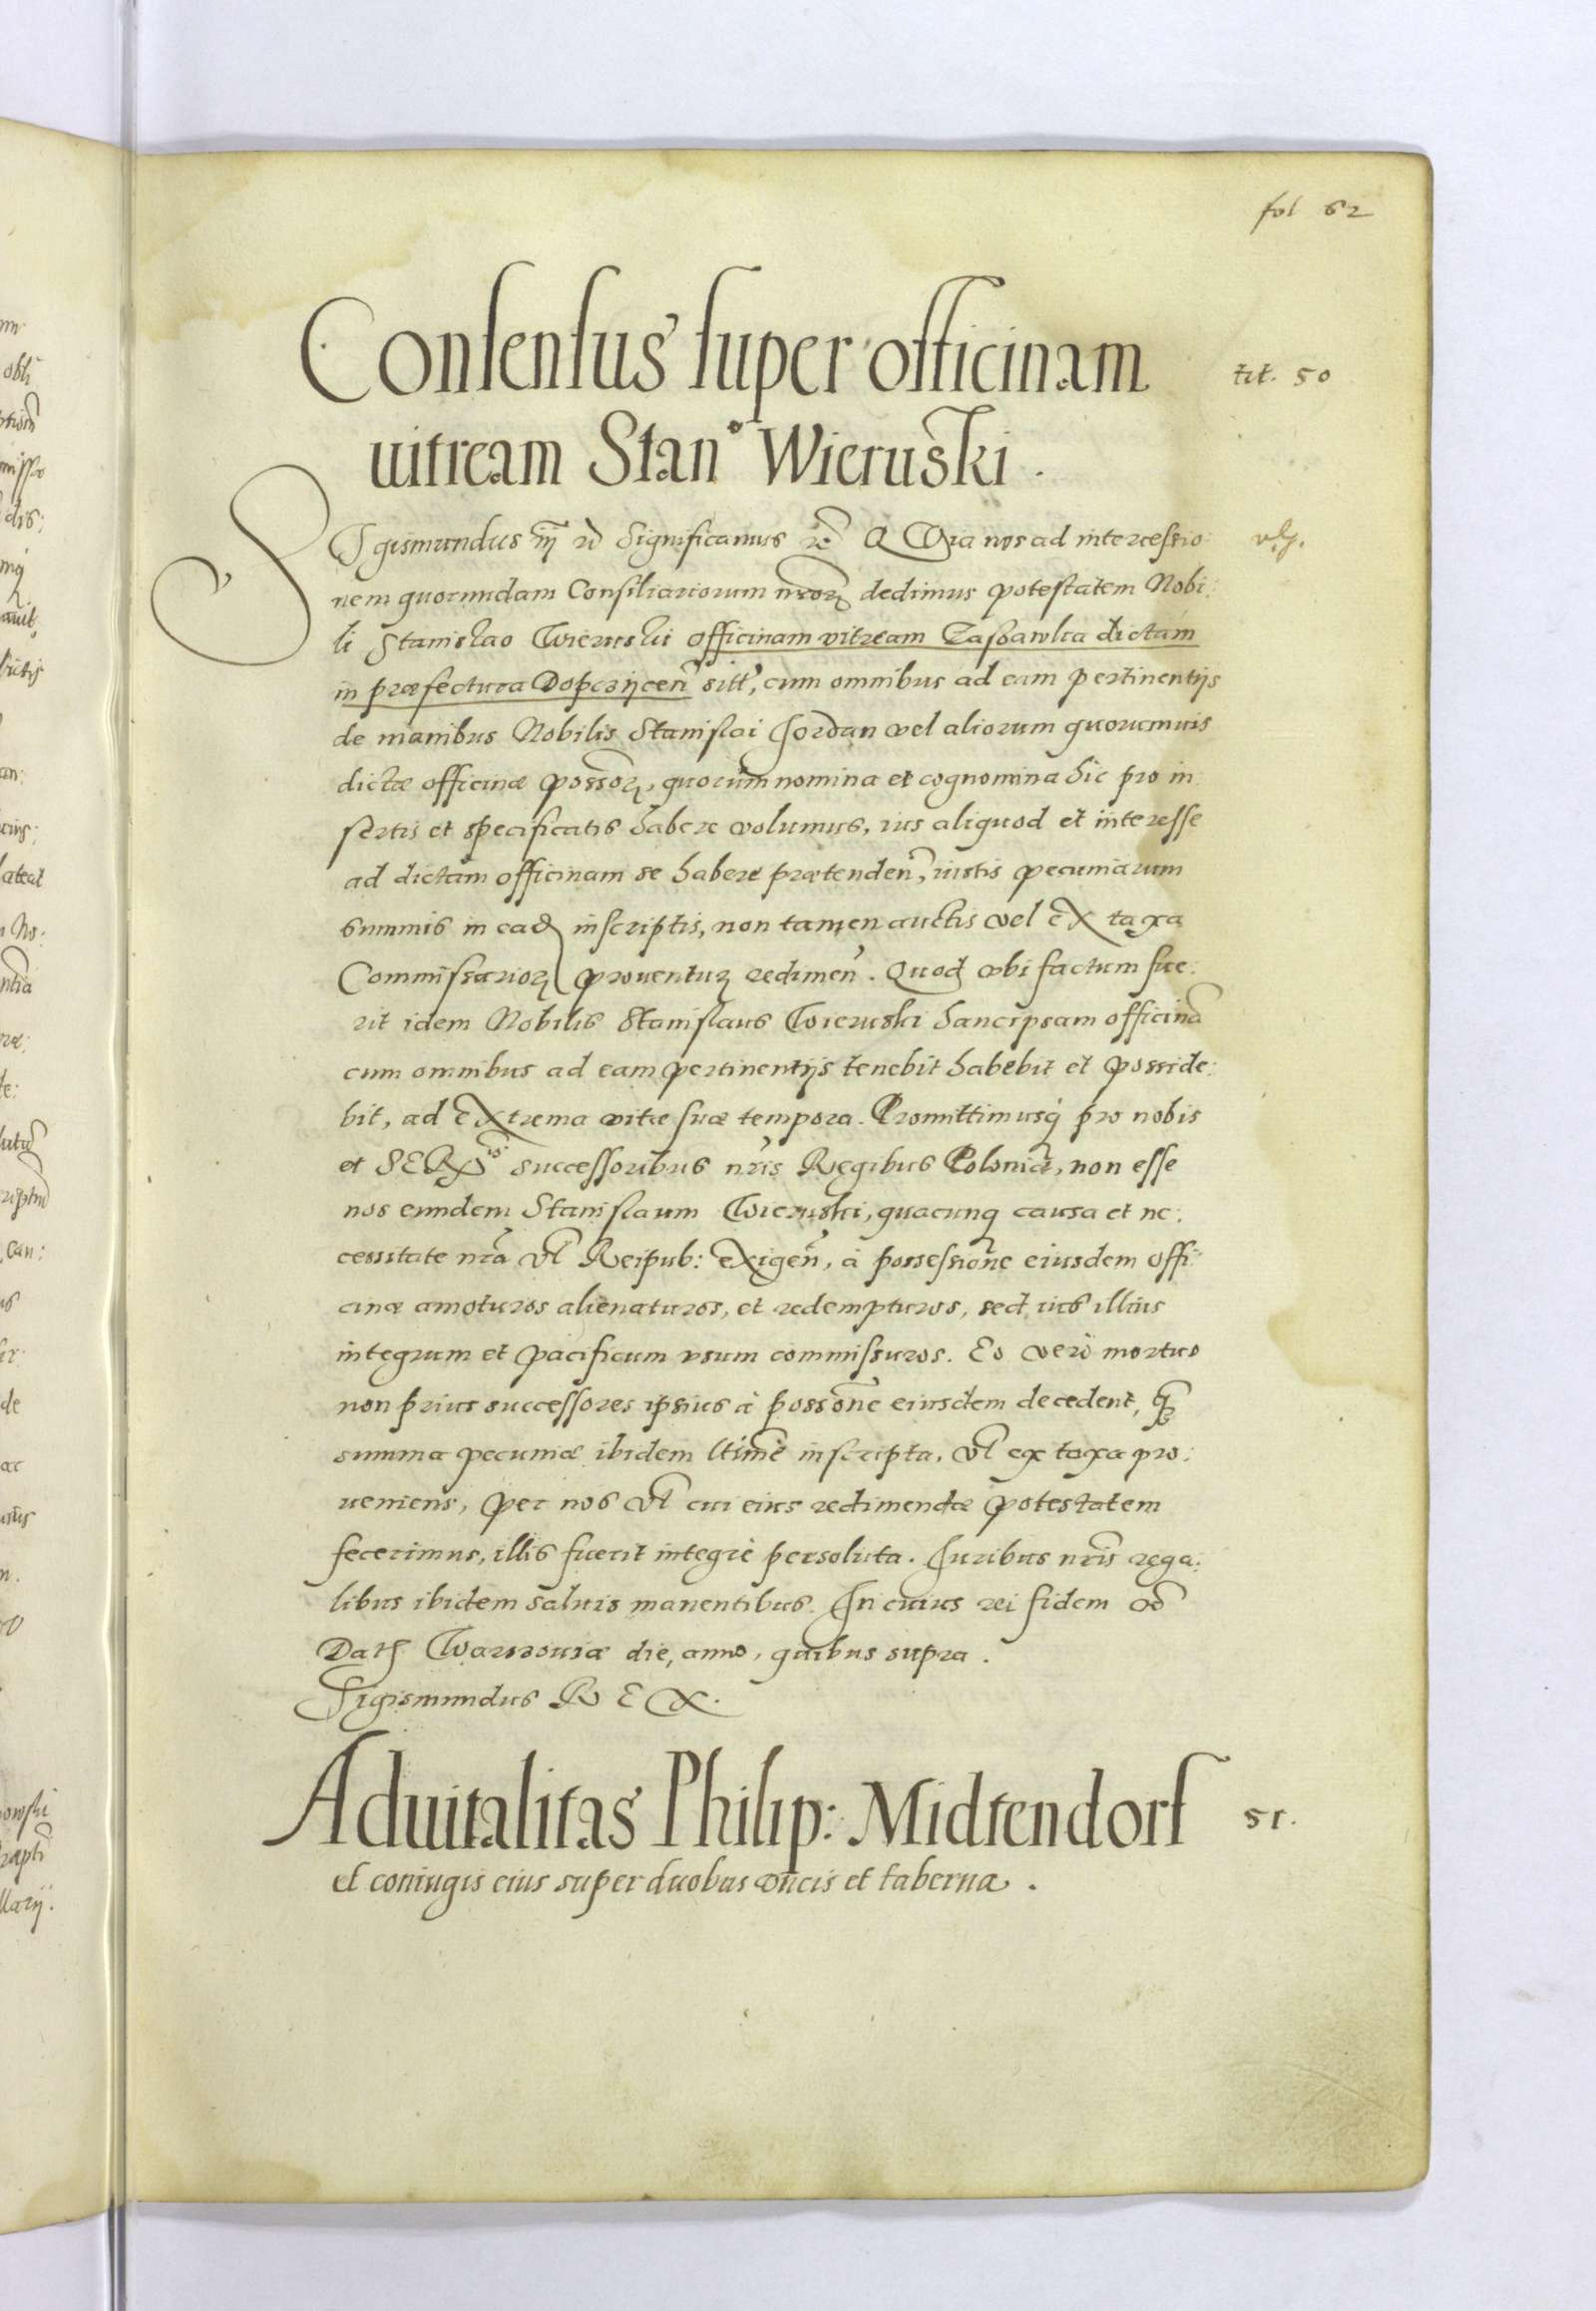 fol 62
Consensus super officinam
tit. 50
uitream Stanº Wieruski.
SIgismundus III Significamus Quia nos ad intercessio:
nem quorundam Consiliariorum nrõrꝫ dedimus potestatem Nobi:
li Stanislao Wieruski officinam vitream dictam
in præfectura sitt, cum omnibus ad eam pertinentijs
de manibus Nobilis Stanislai Jordan vel aliorum quorumuis
dictæ officinæ possõrꝫ, quorum nomina et cognomina hic pro in:
sertis et specificatis habere volumus, ius aliquod et interesse
ad dictam officinam se habere prætenden̄, iustis pecuniarum
summis in eadꝫ inscriptis, non tamen auctis vel ex taxa
Commissariorꝫ prouenturꝫ redimen̄. Quod vbi factum fue:
rit idem Nobilis Stanislaus Wieruski hanc ipsam officinã
cum omnibus ad eam pertinentijs tenebit habebit et posside:
bit, ad extrema vitæ suæ tempora. Promittimusq́ pro nobis
et successoribus nr̃is Regibus Poloniæ, non esse
nos eundem Stanislaum Wieruski, quacunq causa et ne:
cessitate nrã vl̃ Reipub: exigen̄, à possessione eiusdem offi:
cinæ amoturos alienaturos, et redempturos, sed ius illius
integrum et pacificum vsum commissuros. Eo verò mortuo
non prius successores ipsius à possõne eiusdem decedent, q̃
summa pecuniæ ibidem ltimè inscripta, vl̃ ex taxa pro:
ueniens, per nos vl̃ cui eius redimendæ potestatem
fecerimus, illis fuerit integrè persoluta. Juribus nr̃is rega:
libus ibidem saluis manentibus. In cuius rei fidem
Datꝫ Warssouiæ die, anno, quibus supra.
Sigismundus REX.
Aduitalitas Philip: Midtendorf
51.
et coniugis eius super duobus vncis et taberna.